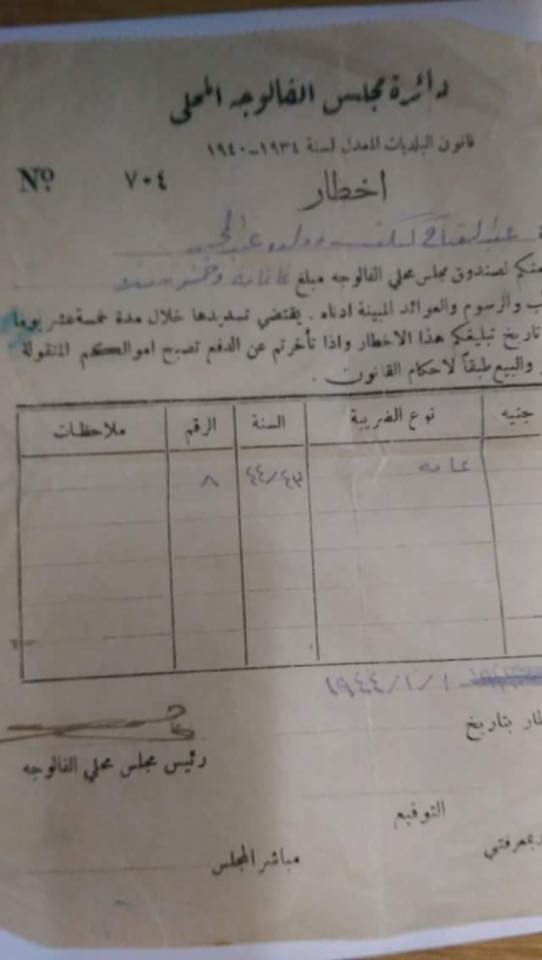 دائرة مجلس الفالوجه المحلي
قانون البلديات المعدل لسنة ١٩٣٤-١٩٤٠
No ٧٠٤
اخطار
لصندوق مجلس محلي الفالوجه مبلغ
والرسوم والعوائد المبينة ادناه . يقتضي تسديدها خلال مدة خمسة عشر يوما
تاريخ تبليغكم هذا الاخطار واذا تأخرتم عن الدفع تصبح اموالكم المنقولة
والبيع طبقاً لاحكام القانون .
جنيه نوع الضريبة السنة الرقم ملاحظات
عامه ٤٤/٤٣ ٨
١٩٤٤/١/١
بتاريخ
رئيس مجلس محلي الفالوجه
التوقيع
مباشر المجلس